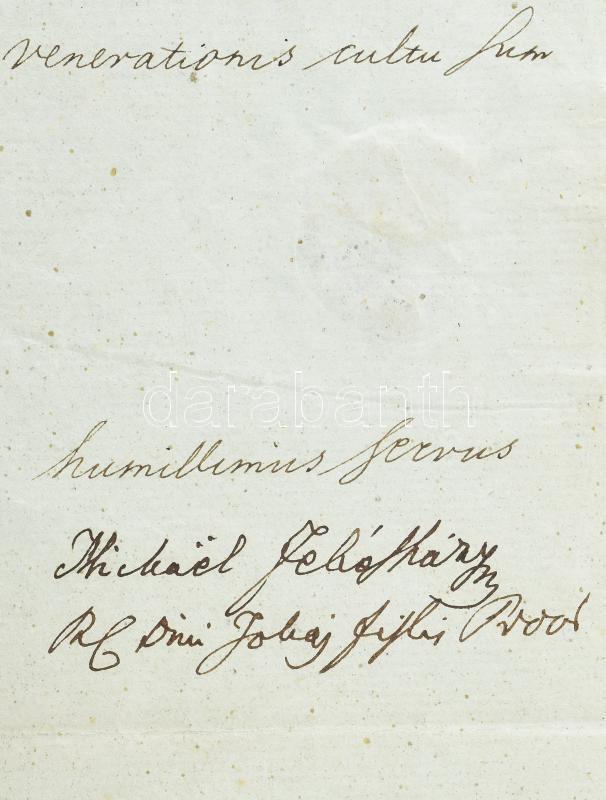 venerationis cultu sum
darabanth
humillimus servus
Michaël
RC Dni Tokaj fislis Provor